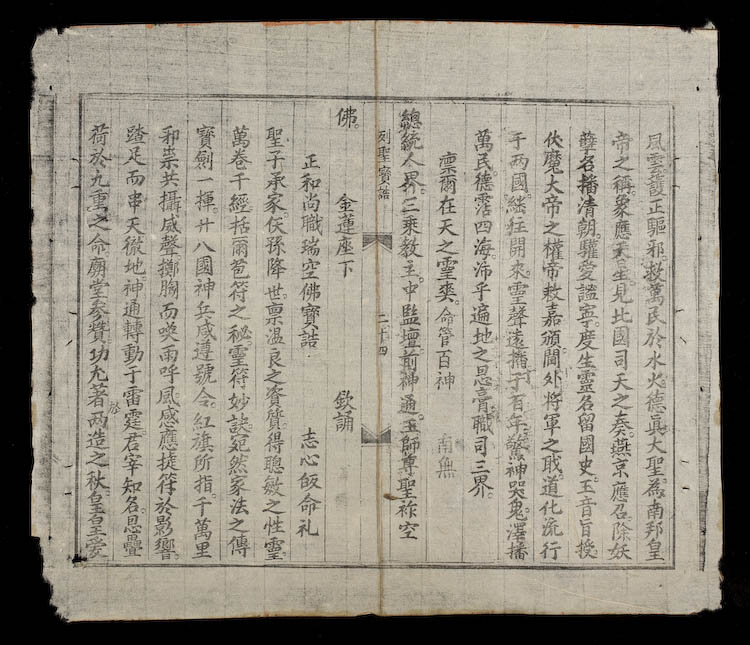 風雲護正驅邪救萬民於水火德眞大聖為南邦皇
帝之稱象應天生見比國司天之奏燕京應召除妖
孽名播清朝驩愛謐寧度生靈名留國史玉音旨授
伏魔大帝之權帝敕嘉頒閫外將軍之戢道化流行
于两國 繼往開來靈聲遠播于百年驚神哭鬼澤播
萬民德霑四海沛乎遍地之恩膏職司三界
凛爾在天之靈爽命管百神 南無
總統人界三乘教主中監壇前神通玉師尊聖祚空
列聖寶誥 二十四
佛 金蓮座下 欽誦
正和尚職瑞空佛寶誥 志心皈命礼
聖子承家仸孫降世禀温良之資質得聰敏之性靈
萬卷千經括爾苞符之秘靈符妙訣宛然家法之傳
寳劍一揮廿八國神兵咸遵號令紅旗所指千萬里
邪祟共攝威聲擲胸而噗雨呼風感應捷符於影響
蹅足而串天徹地神通轉動于雷霆君宰知名恩疊
荷於九重之命廟堂參贊功尤著於两造之秋皇皇爱